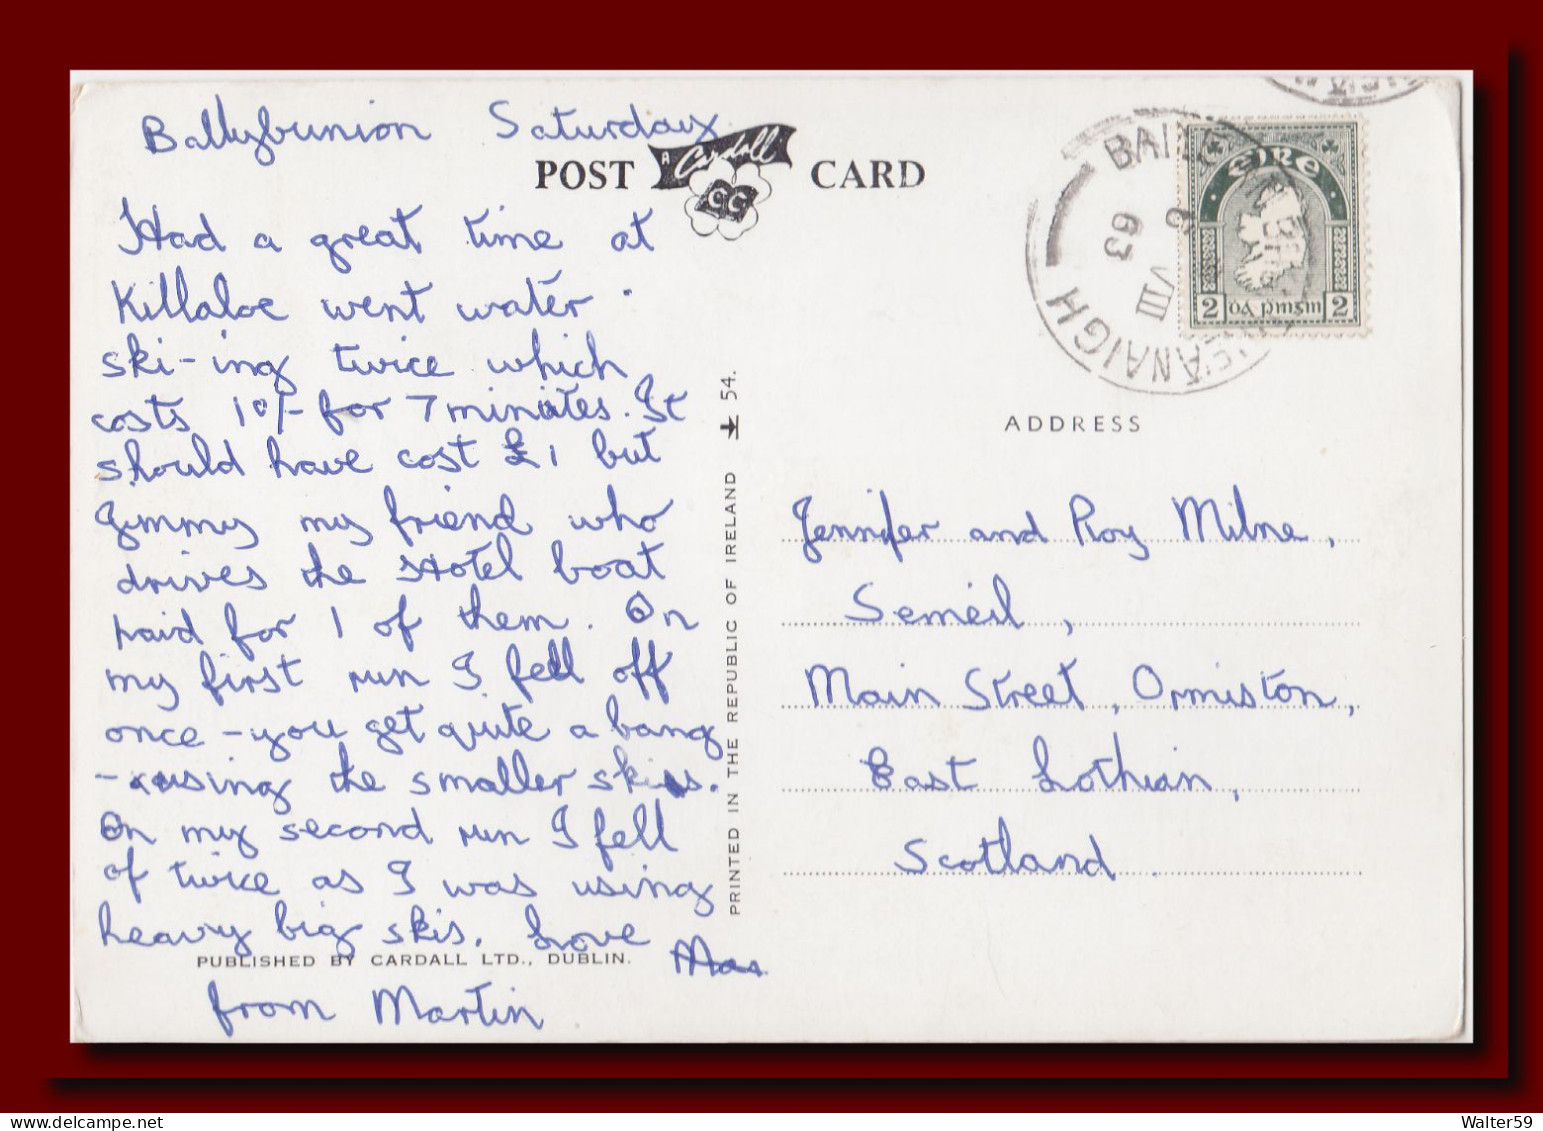 Ballybunion Saturday
POST A Cardall CC CARD
Had a great time at
Killaloe went water
ski-ing twice which
costs 10/- for 7 minutes. It
should have cost £1 but
Jimmy my friend who
drives the Hotel boat
paid for 1 of them. On
my first run I fell off
once - you get quite a bang
- using the smaller skis.
On my second run I fell
of twice as I was using
heavy big skis. Love
from Martin
PUBLISHED BY CARDALL LTD., DUBLIN.
PRINTED IN THE REPUBLIC OF IRELAND 54.
BAILE
ÁNAIGH
VIII
63
éIRe
2 Dá pinginn 2
ADDRESS
Jennifer and Roy Milne,
Semeil,
Main Street, Ormiston,
East Lothian,
Scotland.
Walter59